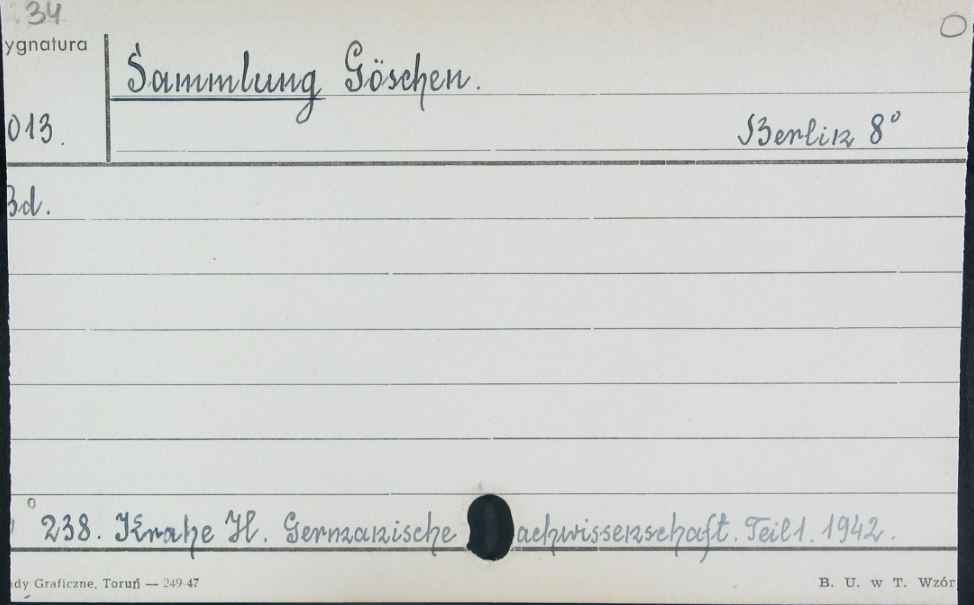 34
ygnatura
Sammlung Göschen.
013.
Berlin 8°
Bd.
238. Krahe H. Germanische achwissenschaft. Teil 1. 1942.
dy Graficzne, Toruń — 249-47
B. U. w T. Wzór